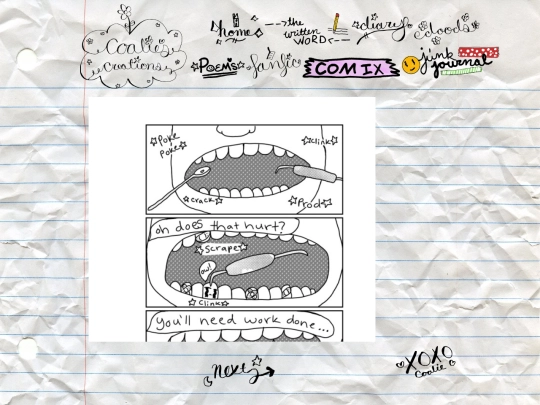 Coalies
Creations
home
the
written
WORD
diary
cdoods
POEMS
fanfic
COMIX
junk
journal
Poke
Poke
Clink
crack
Prod
oh does that hurt?
Scrape
ow!
Clink
You'll need work done...
next
XOXO
Coalie